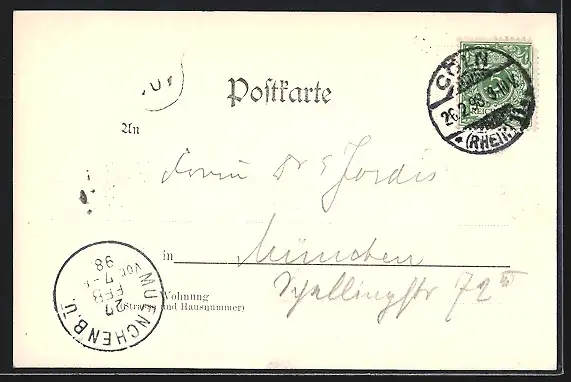 Postkarte
CÖLN
26.2.98. 9-10V.
* (RHEIN) 11a
An
Dr
Jordis
in München
MUENCHEN B.Ü.
27
FEB
VOR. 7-8
98
Wohnung
(Strasse und Hausnummer)
Schellingstr 72